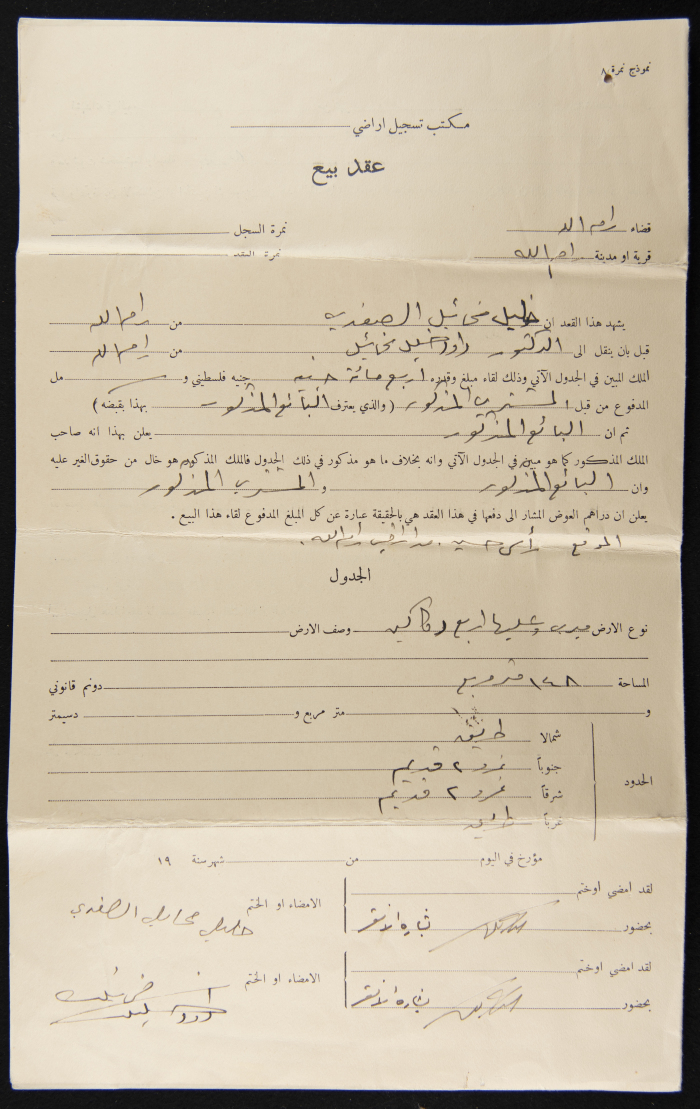 نموذج نمرة ٨
مكتب تسجيل اراضي
عقد بيع
قضاء رام الله نمرة السجل
قرية او مدينة رام الله نمرة العقد
يشهد هذا العقد ان خليل مخائيل الصفدي من رام الله
قبل بان ينقل الى الدكتور داود خليل مخائيل من رام الله
الملك المبين في الجدول الآتي وذلك لقاء مبلغ وقدره اربع مائة جنيه جنيه فلسطيني و مل
المدفوع من قبل المشتري المذكور ( والذي يعترف البائع المذكور بهذا بقبضه )
ثم ان البائع المذكور يعلن بهذا انه صاحب
الملك المذكور كما هو مبين في الجدول الآتي وانه بخلاف ما هو مذكور في ذلك الجدول فالملك المذكور هو خال من حقوق الغير عليه
وان البائع المذكور و المشتري المذكور
يعلن ان دراهم العوض المشار الى دفعها في هذا العقد هي بالحقيقة عبارة عن كل المبلغ المدفوع لقاء هذا البيع .
الموقع رأس حسين . من اراضي رام الله .
الجدول
نوع الارض ميري وعليها اربع دكاكين وصف الارض
المساحة ١٤٨ متر مربع دونم قانوني
و متر مربع و دسيمتر
الحدود
شمالا طريق
جنوباً نمرو ٢ قديم
شرقاً نمرو ٢ قديم
غرباً طريق
مؤرخ في اليوم من شهر سنة ١٩
لقد امضي او ختم
الامضاء او الختم
خليل مخايل الصفدي
بحضور
لقد امضي او ختم
الامضاء او الختم
بحضور